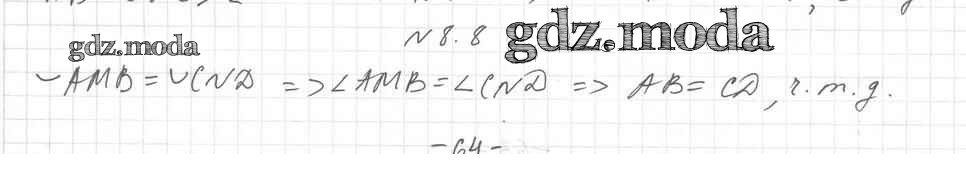 N 8.8 gdz.moda
gdz.moda
◡AMB = ◡CND => ∠AMB = ∠CND => AB = CD, ч.т.д.
-64-